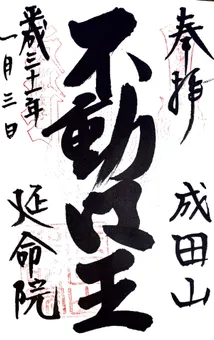 奉拝
成田山
不動明王
平成三十一年
一月三日
延命院